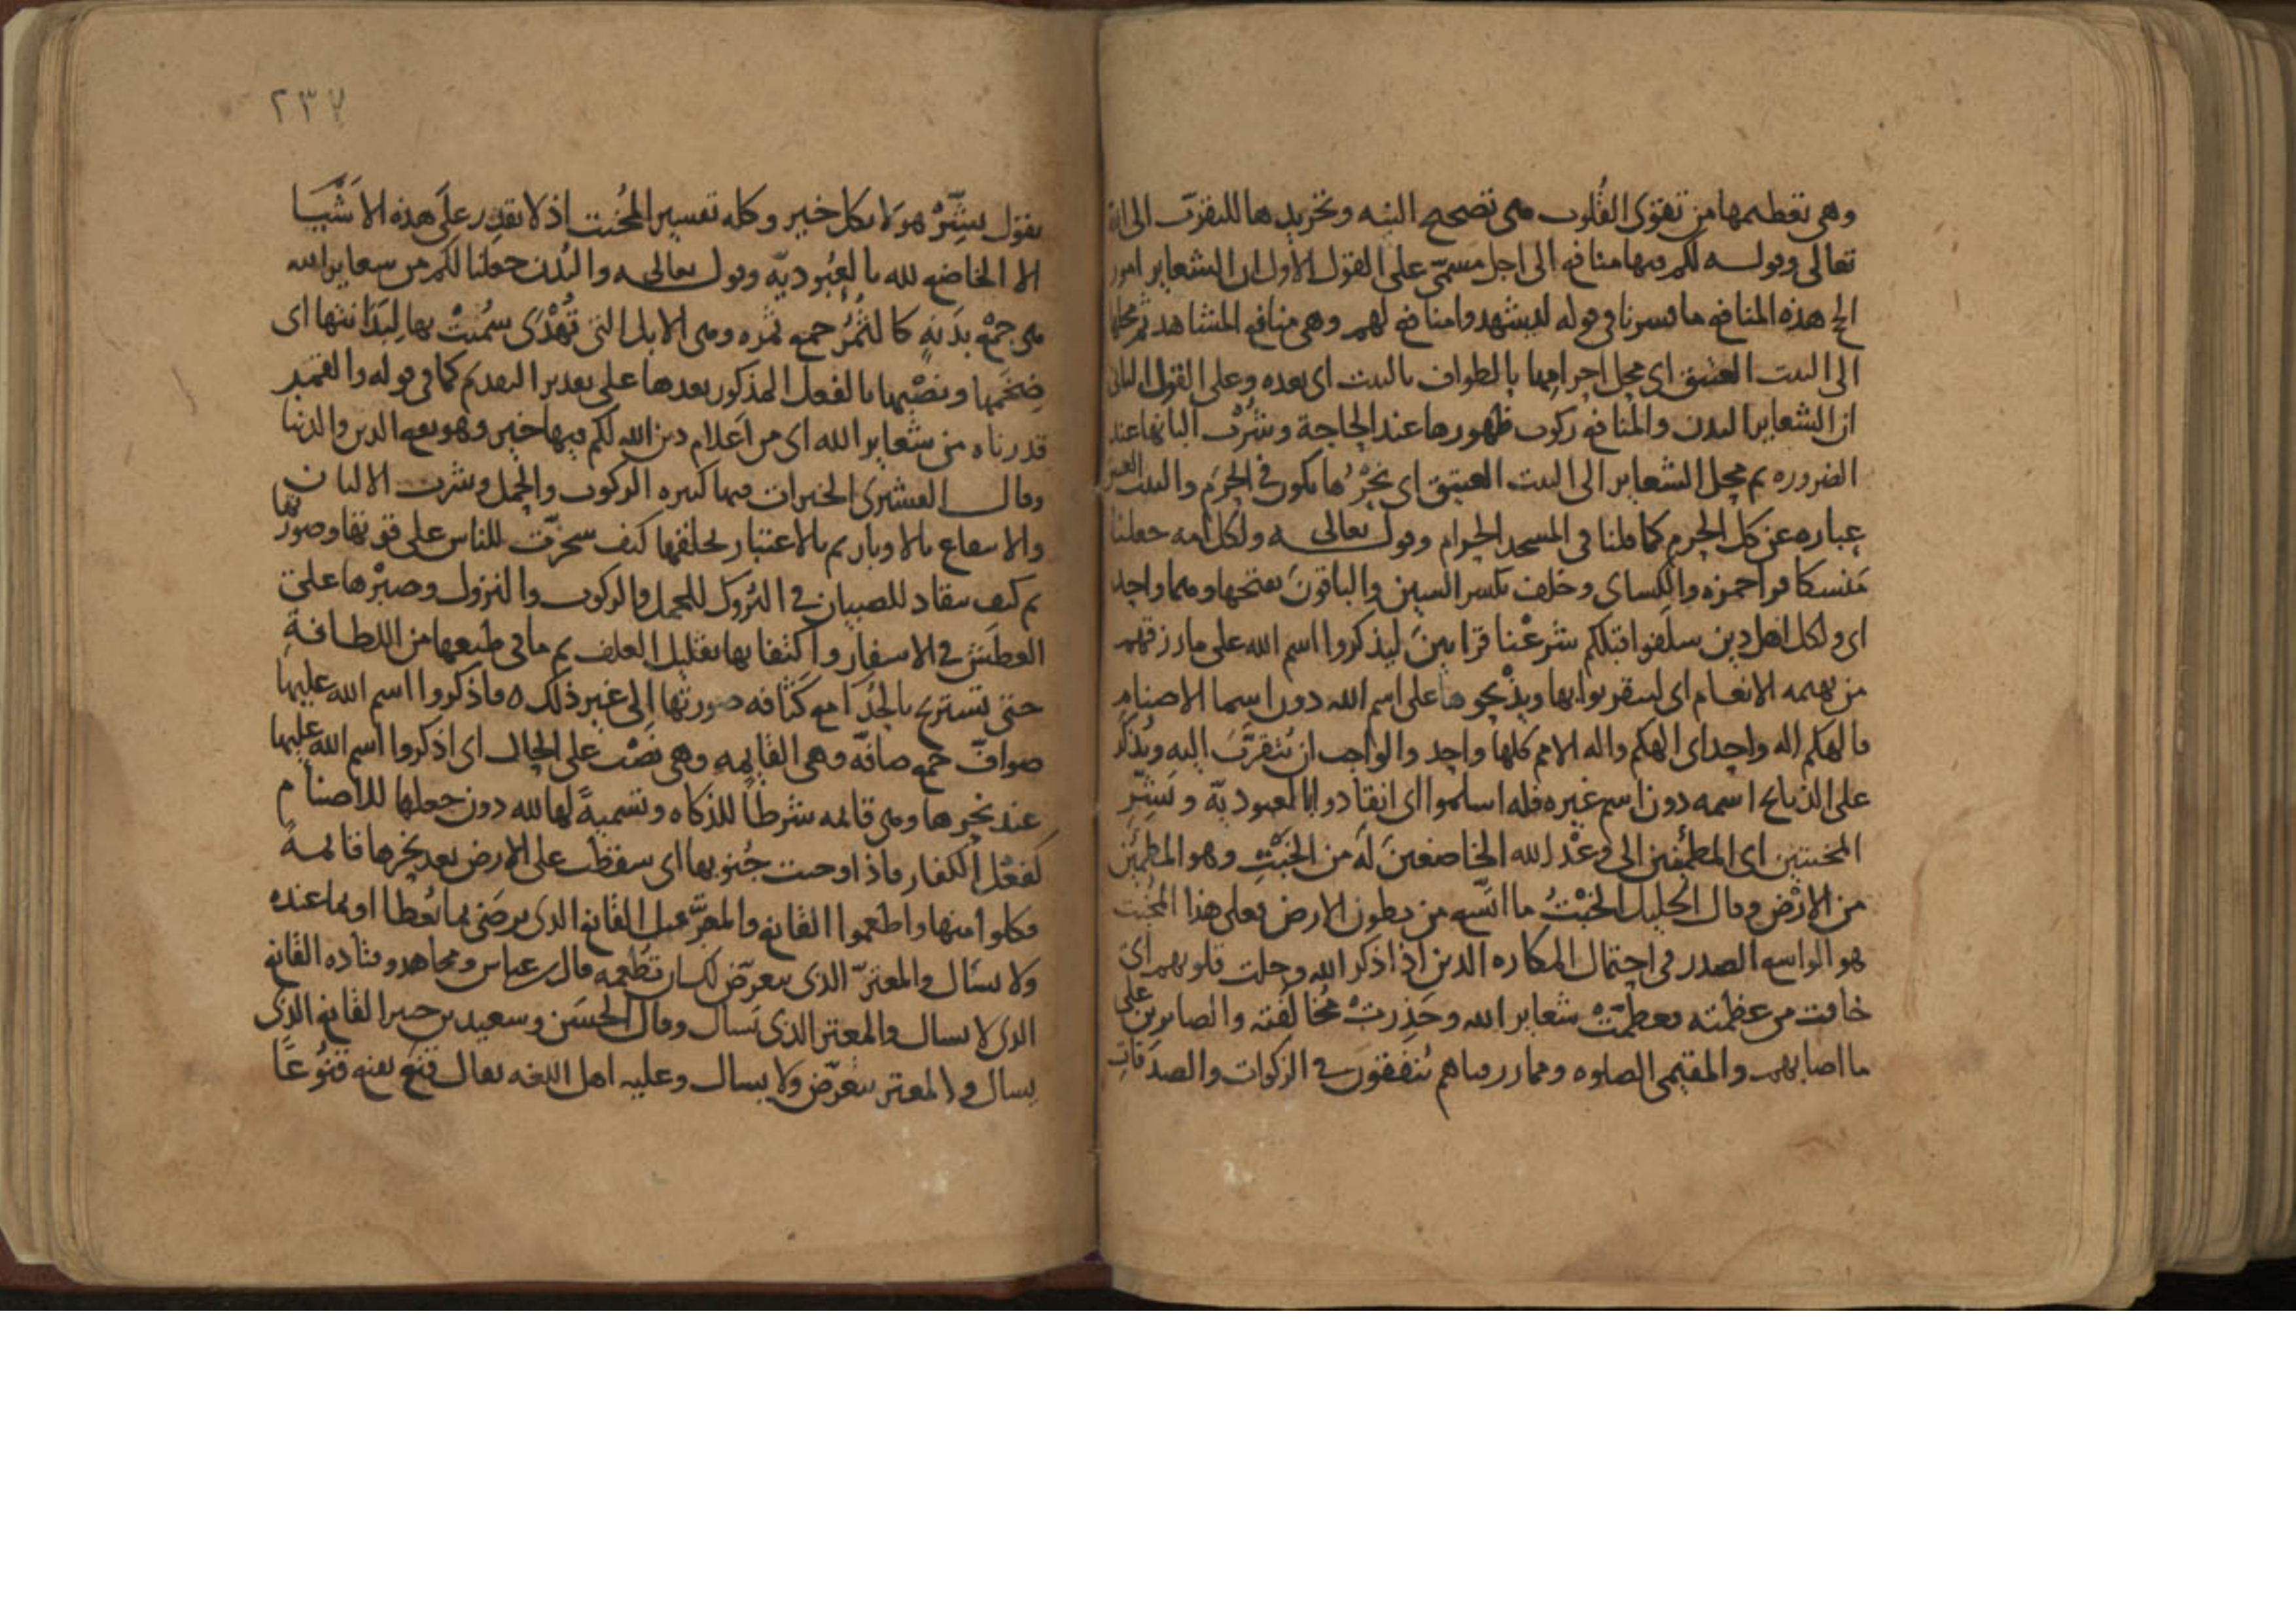 وهى تعظيمها من تقوى القلوب هى تصحيح النيه وتخريدها للتقرب الى الله
تعالى وقوله لكم فيها منافع الى اجل مسمى على القول الأول ان الشعاير امور
الحج هذه المنافع ما فسرنا فى قوله ليشهدوا منافع لهم وهى منافع المشاهد ثم محلها
الى البيت العتيق اى محل احرامها بالطواف بالبيت اى بعده وعلى القول الثانى
ان الشعاير البدن والمنافع ركوب ظهورها عند الحاجة وشرب البانها عند
الضروره ثم محل الشعاير الى البيت العتيق اى نحرها يكون فى الحرم والبيت العتيق
عباره عن كل الحرم كما قلنا فى المسجد الحرام وقوله تعالى ولكل امه جعلنا
منسكا قرا حمزه والكساى وخلف بكسر السين والباقون بفتحها وهما واحد
اى ولكل اهل دين سلفوا قبلكم شرعنا قرابين ليذكروا اسم الله على ما رزقهم
من بهيمه الانعام اى ليتقربوا بها ويذبحوها على اسم الله دون اسما الاصنام
فالهكم اله واحد اى الهكم واله الامم كلها واحد والواجب ان يتقرب اليه ويذكر
على الذبايح اسمه دون اسم غيره فله اسلموا اى انقادوا بالعبوديه وبشر
المخبتين اى المطمئنين الى وعد الله الخاضعين له من الخبت وهو المطمئن
من الارض وقال الخليل الخبت ما اتسع من بطون الارض فعلى هذا المخبت
هو الواسع الصدر فى احتمال المكاره الذين اذا ذكر الله وجلت قلوبهم اى
خافت من عظمته فعظمت شعاير الله وحذرت مخالفته والصابرين على
ما اصابهم والمقيمى الصلوه ومما رزقناهم ينفقون فى الزكوات والصدقات
٢٣٧
يقول بشر هولا بكل خير وكله تفسير المخبت اذ لا يقدر على هذه الاشيا
الا الخاضع لله بالعبوديه وقوله تعالى والبدن جعلنا لكم من شعاير الله
هى جمع بدنه كالثمر جمع ثمره وهى الابل التى تهدى سميت بها لبدانتها اى
ضخمها ونصبها بالفعل المذكور بعدها على تقدير التقديم كما فى قوله والقمر
قدرناه من شعاير الله اى من اعلام دين الله لكم فيها خير وهو نفع الدين والدنيا
وقال القشيرى الخيرات فيها كثيره الركوب والحمل وشرب الالبان
والانتفاع بالاوبار ثم بالاعتبار بخلقها كيف سخرت للناس على قوتها وصورتها
ثم كيف تنقاد للصبيان فى البروك للحمل والركوب والنزول وصبرها على
العطش فى الاسفار واكتفا بها بقليل العلف ثم ما فى طبعها من اللطافة
حتى تستريح بالحدا مع كثافه صورتها الى غير ذلك ه فاذكروا اسم الله عليها
صواف جمع صافه وهى القايمه وهى نصب على الحال اى اذكروا اسم الله عليها
عند نحرها وهى قايمه شرطا للذكاه وتسمية لها لله دون جعلها للاصنام
كفعل الكفار فاذا وجبت جنوبها اى سقطت على الارض بعد نحرها قايمة
فكلوا منها واطعموا القانع والمعتر قيل القانع الذى يرضى بما يعطا او بما عنده
ولا يسال والمعتر الذى يتعرض لك ان تطعمه قال بن عباس ومجاهد وقتاده القانع
الذى لا يسال والمعتر الذى يسال وقال الحسن وسعيد بن جبير القانع الذى
يسال والمعتر يتعرض ولا يسال وعليه اهل اللغه يقال قنع يقنع قنوعا